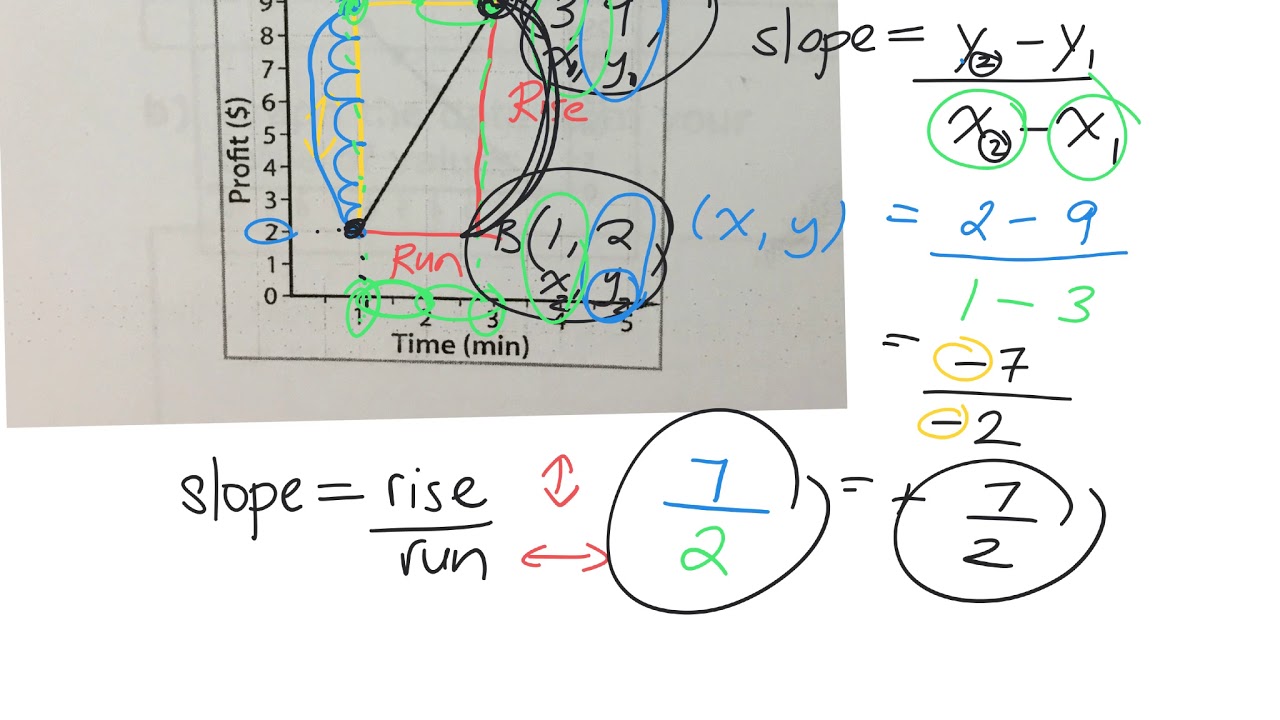 9
8
7
6
5
4
3
2
1
0
Profit ($)
1 2 3 4 5
Time (min)
3 9
x₁, y₁
Rise
Run
B (1, 2)
x₂, y₂
(x, y)
slope = y₂ - y₁
x₂ - x₁
= 2 - 9
1 - 3
= -7
-2
slope = rise
run
7
2
= + 7
2